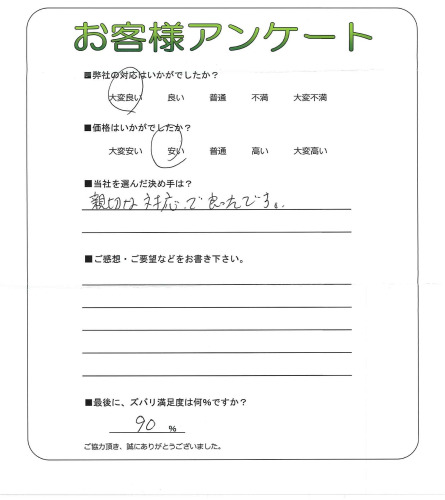 お客様アンケート
■弊社の対応はいかがでしたか？
大変良い 良い 普通 不満 大変不満
■価格はいかがでしたか？
大変安い 安い 普通 高い 大変高い
■当社を選んだ決め手は？
親切な対応で良ったです。
■ご感想・ご要望などをお書き下さい。
■最後に、ズバリ満足度は何%ですか？
90 %
ご協力頂き、誠にありがとうございました。